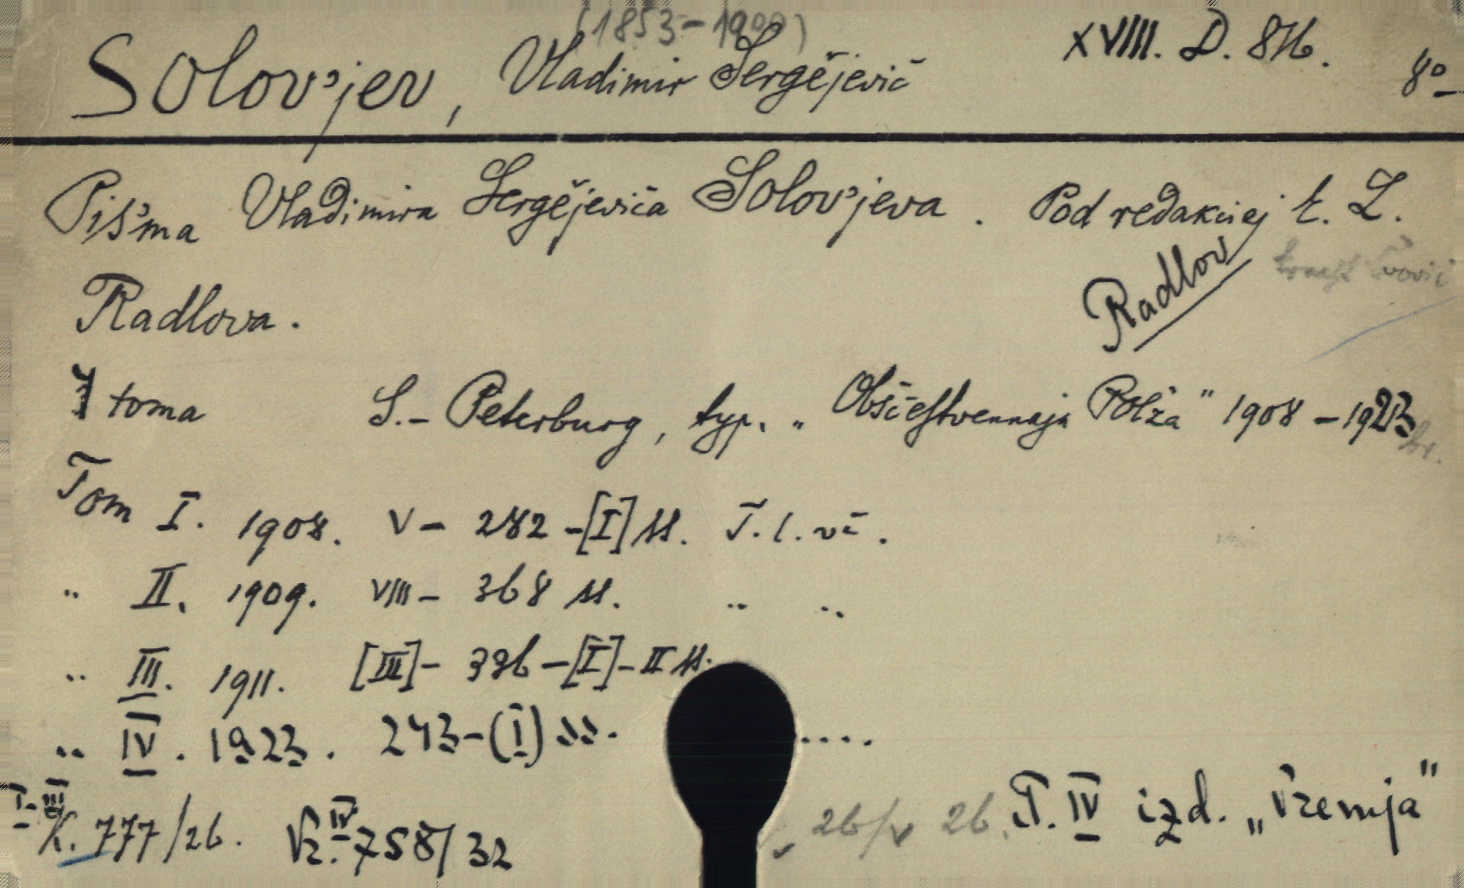 (1853-1900)
Solov'jev, Vladimir Sergějevič XVIII. D. 876. 8°
Piśma Vladimira Sergějeviča Solov'jeva. Pod redakciej E. L.
Radlova. Radlov
toma S.- Peterburg, typ. „Občšestvennaja Pol'za" 1908 - 1923
Tom I. 1908. V - 282 - [I] ss. T. l. vč.
" II. 1909. VIII - 368 ss. " "
" III. 1911. [III] - 336 - [I] - II ss.
" IV. 1923. 243 - (I) ss. ....
I-III K. 777/26. IV 758/32 26 T. IV izd. „Vremja"